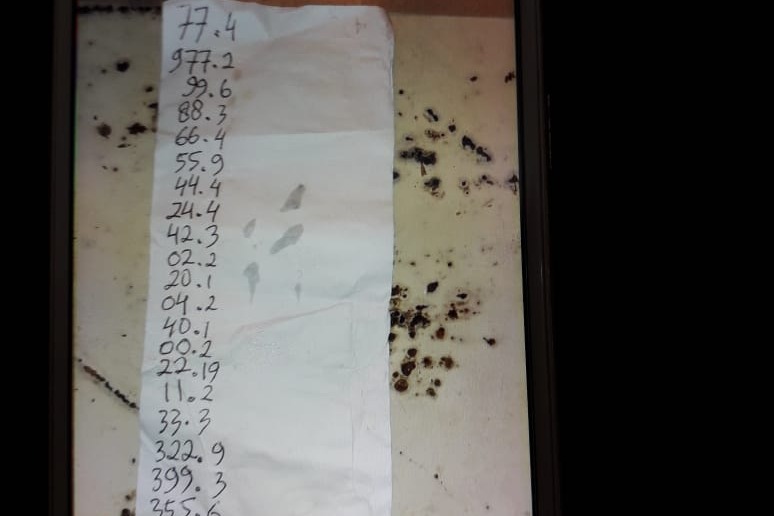 77.4
977.2
99.6
88.3
66.4
55.9
44.4
24.4
42.3
02.2
20.1
04.2
40.1
00.2
22.19
11.2
33.3
322.9
399.3
355.6